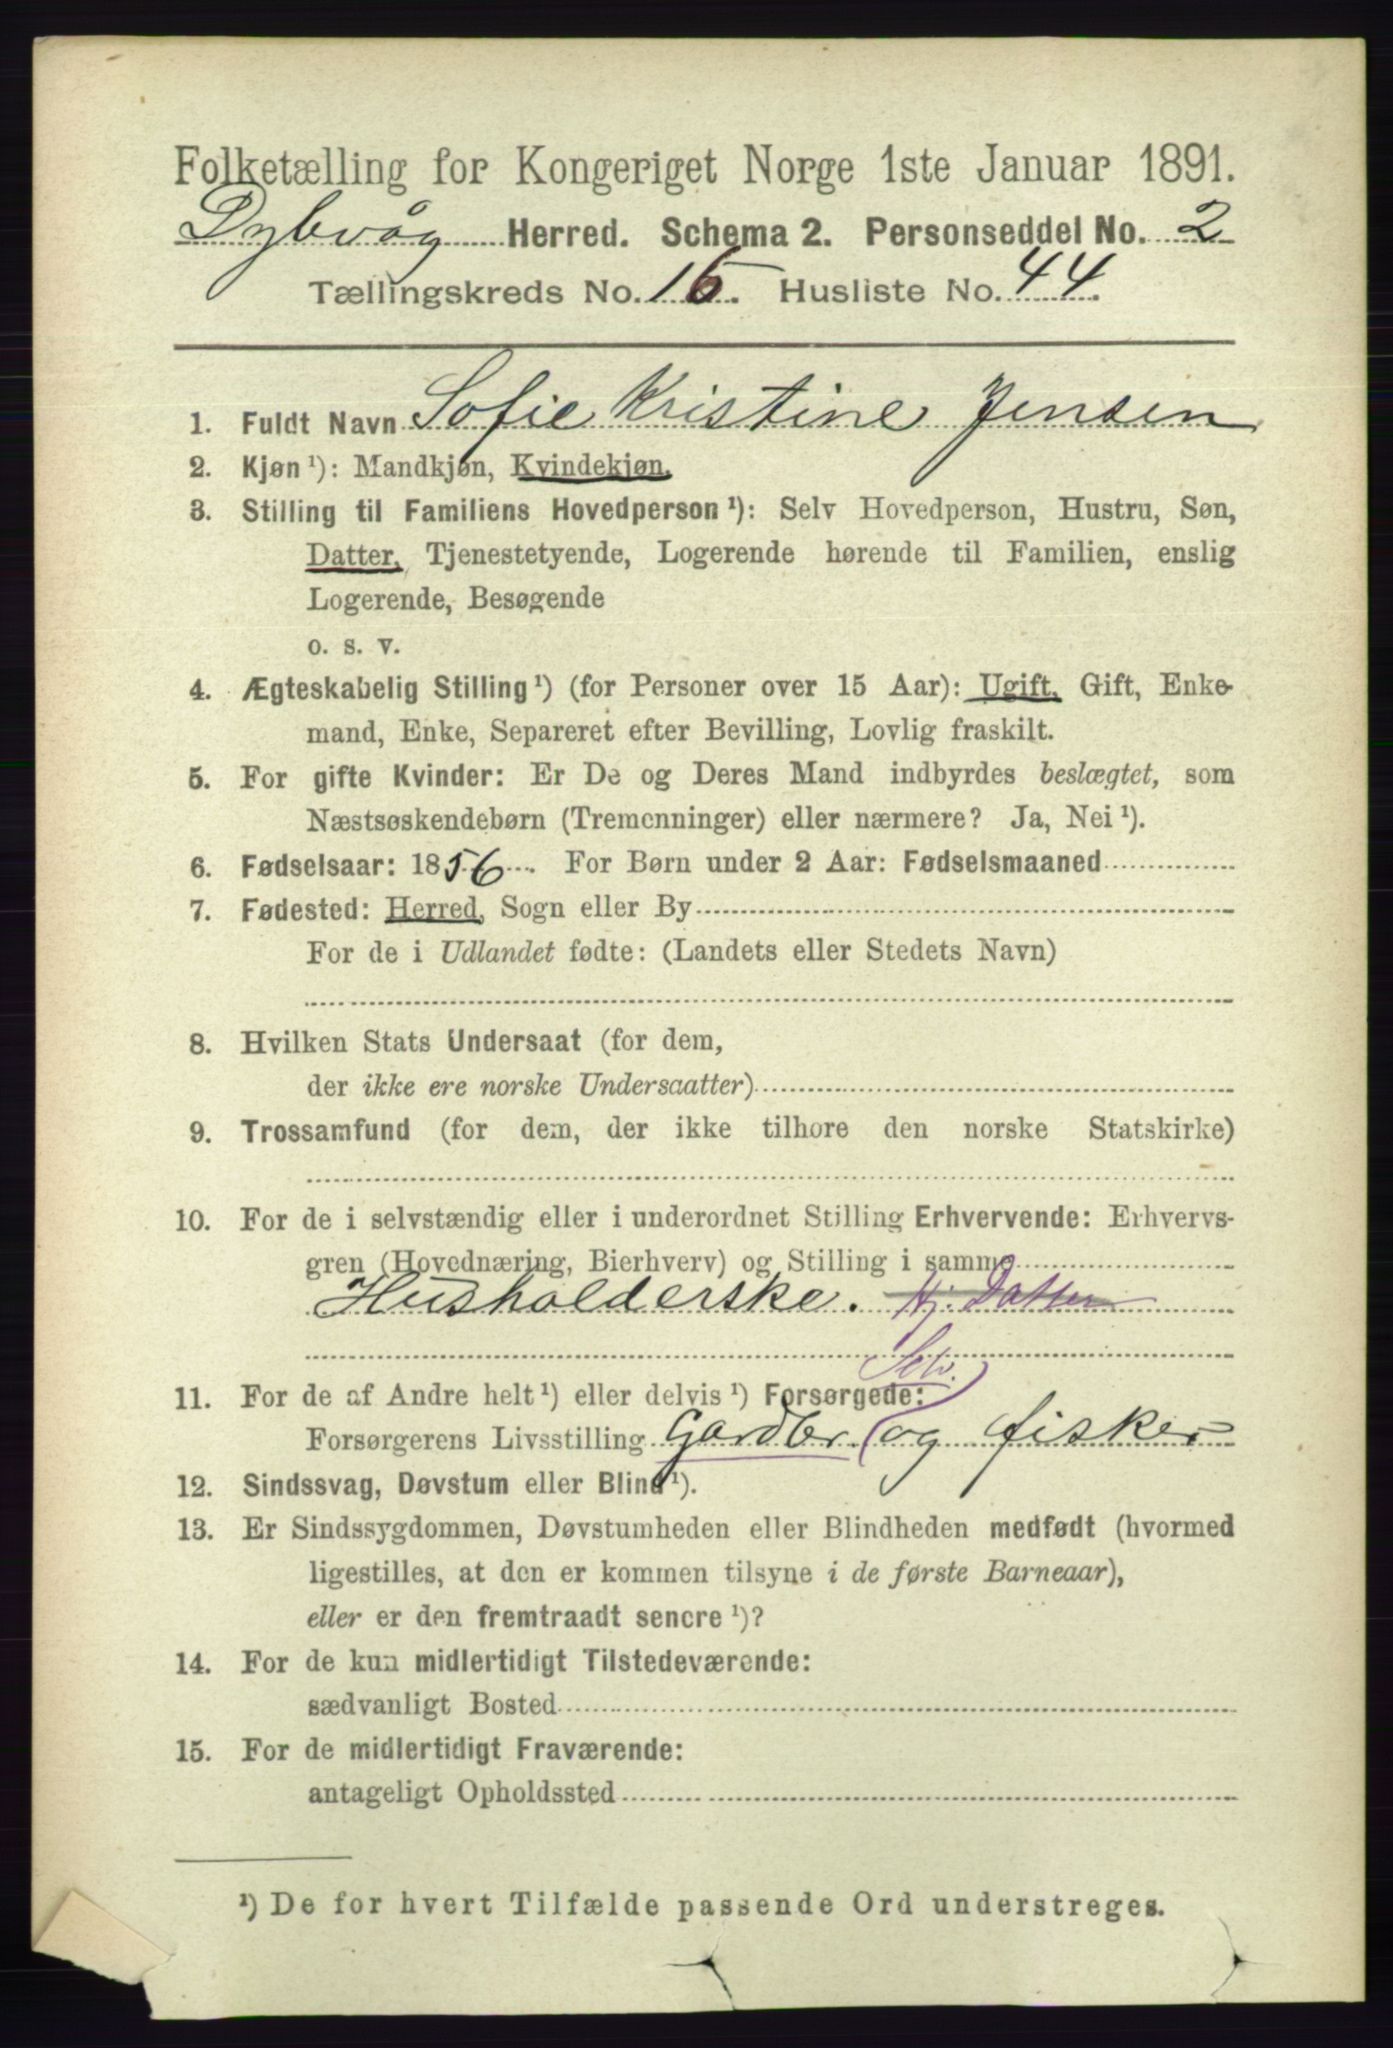 Folketælling for Kongeriget Norge 1ste Januar 1891.
Dybvåg Herred. Schema 2. Personseddel No. 2
Tællingskreds No. 16. Husliste No. 44.
1. Fuldt Navn Sofie Kristine Jensen
2. Kjøn ¹): Mandkjøn, Kvindekjøn.
3. Stilling til Familiens Hovedperson ¹): Selv Hovedperson, Hustru, Søn,
Datter, Tjenestetyende, Logerende hørende til Familien, enslig
Logerende, Besøgende
o. s. v.
4. Ægteskabelig Stilling ¹) (for Personer over 15 Aar): Ugift, Gift, Enke-
mand, Enke, Separeret efter Bevilling, Lovlig fraskilt.
5. For gifte Kvinder: Er De og Deres Mand indbyrdes beslægtet, som
Næstsøskendebørn (Tremenninger) eller nærmere? Ja, Nei ¹).
6. Fødselsaar: 1856. For Børn under 2 Aar: Fødselsmaaned
7. Fødested: Herred, Sogn eller By
For de i Udlandet fødte: (Landets eller Stedets Navn)
8. Hvilken Stats Undersaat (for dem,
der ikke ere norske Undersaatter)
9. Trossamfund (for dem, der ikke tilhøre den norske Statskirke)
10. For de i selvstændig eller i underordnet Stilling Erhvervende: Erhvervs-
gren (Hovednæring, Bierhverv) og Stilling i samme
Husholderske. Hj. Datter
Selv.
11. For de af Andre helt ¹) eller delvis ¹) Forsørgede:
Forsørgerens Livsstilling Gardbr. og fisker
12. Sindssvag, Døvstum eller Blind ¹).
13. Er Sindssygdommen, Døvstumheden eller Blindheden medfødt (hvormed
ligestilles, at den er kommen tilsyne i de første Barneaar),
eller er den fremtraadt senere ¹)?
14. For de kun midlertidigt Tilstedeværende:
sædvanligt Bosted
15. For de midlertidigt Fraværende:
antageligt Opholdssted
¹) De for hvert Tilfælde passende Ord understreges.